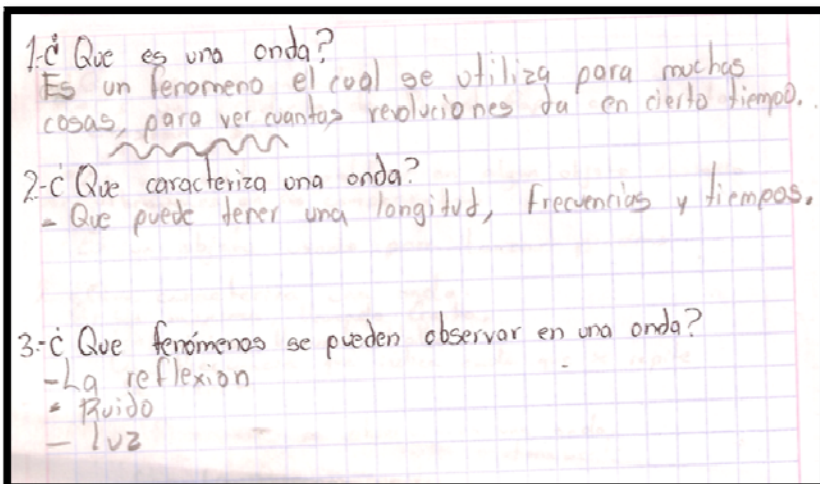 1-¿ Que es una onda?
Es un fenomeno el cual se utiliza para muchas
cosas, para ver cuantas revoluciones da en cierto tiempo.
2-¿ Que caracteriza una onda?
- Que puede tener una longitud, frecuencias y tiempos.
3-¿ Que fenómenos se pueden observar en una onda?
- La reflexion
- Ruido
- luz